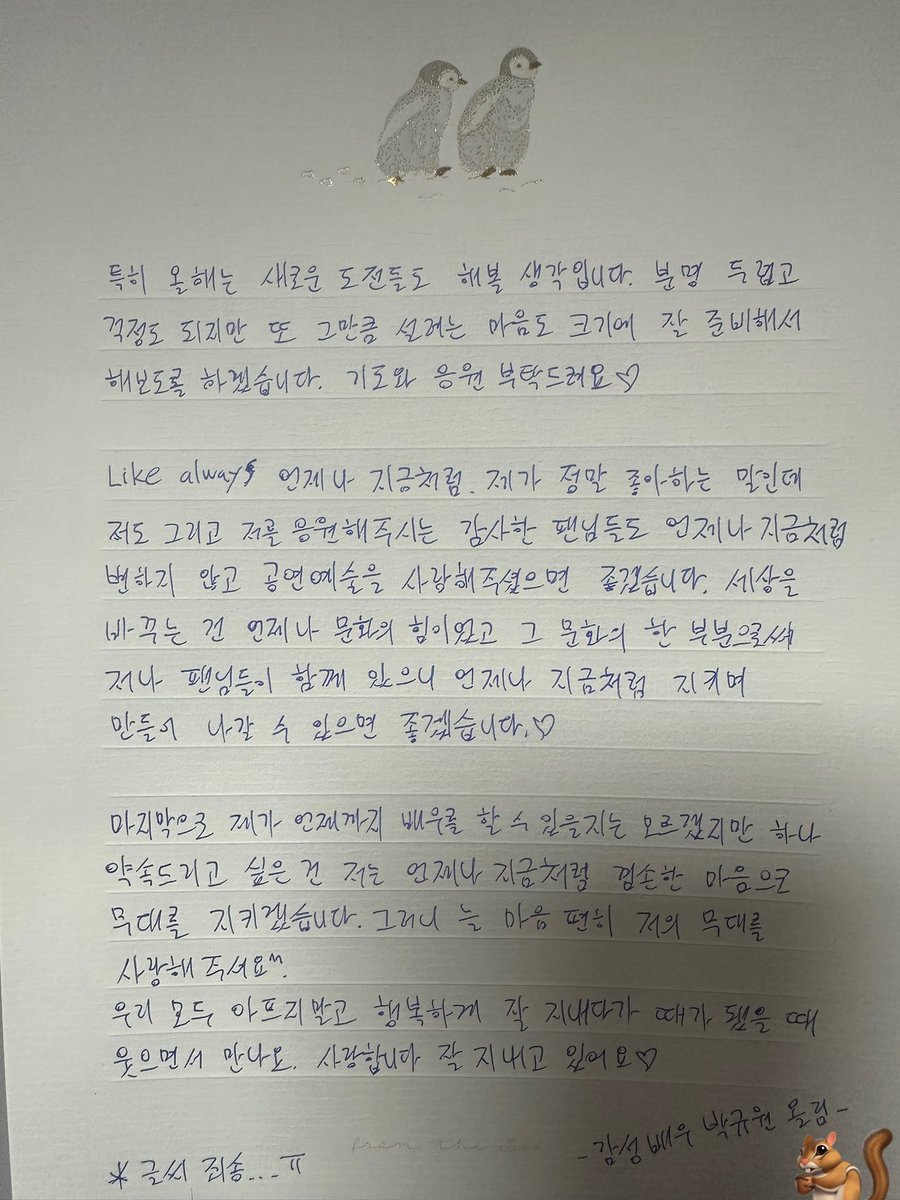 특히 올해는 새로운 도전들도 해볼 생각입니다. 분명 두렵고
걱정도 되지만 또 그만큼 설레는 마음도 크기에 잘 준비해서
해보도록 하겠습니다. 기도와 응원 부탁드려요♡
Like always 언제나 지금처럼. 제가 정말 좋아하는 말인데
저도 그리고 저를 응원해주시는 감사한 팬님들도 언제나 지금처럼
변하지 않고 공연예술을 사랑해주셨으면 좋겠습니다. 세상을
바꾸는 건 언제나 문화의 힘이었고 그 문화의 한 부분으로써
저나 팬님들이 함께 있으니 언제나 지금처럼 지키며
만들어 나갈 수 있으면 좋겠습니다.♡
마지막으로 제가 언제까지 배우를 할 수 있을지는 모르겠지만 하나
약속드리고 싶은 건 저는 언제나 지금처럼 겸손한 마음으로
무대를 지키겠습니다. 그러니 늘 마음 편히 저의 무대를
사랑해 주셔요^^.
우리 모두 아프지말고 행복하게 잘 지내다가 때가 됐을 때
웃으면서 만나요. 사랑합니다 잘 지내고 있어요♡
-감성배우 박규원 올림-
from the
* 글씨 죄송...ㅠ